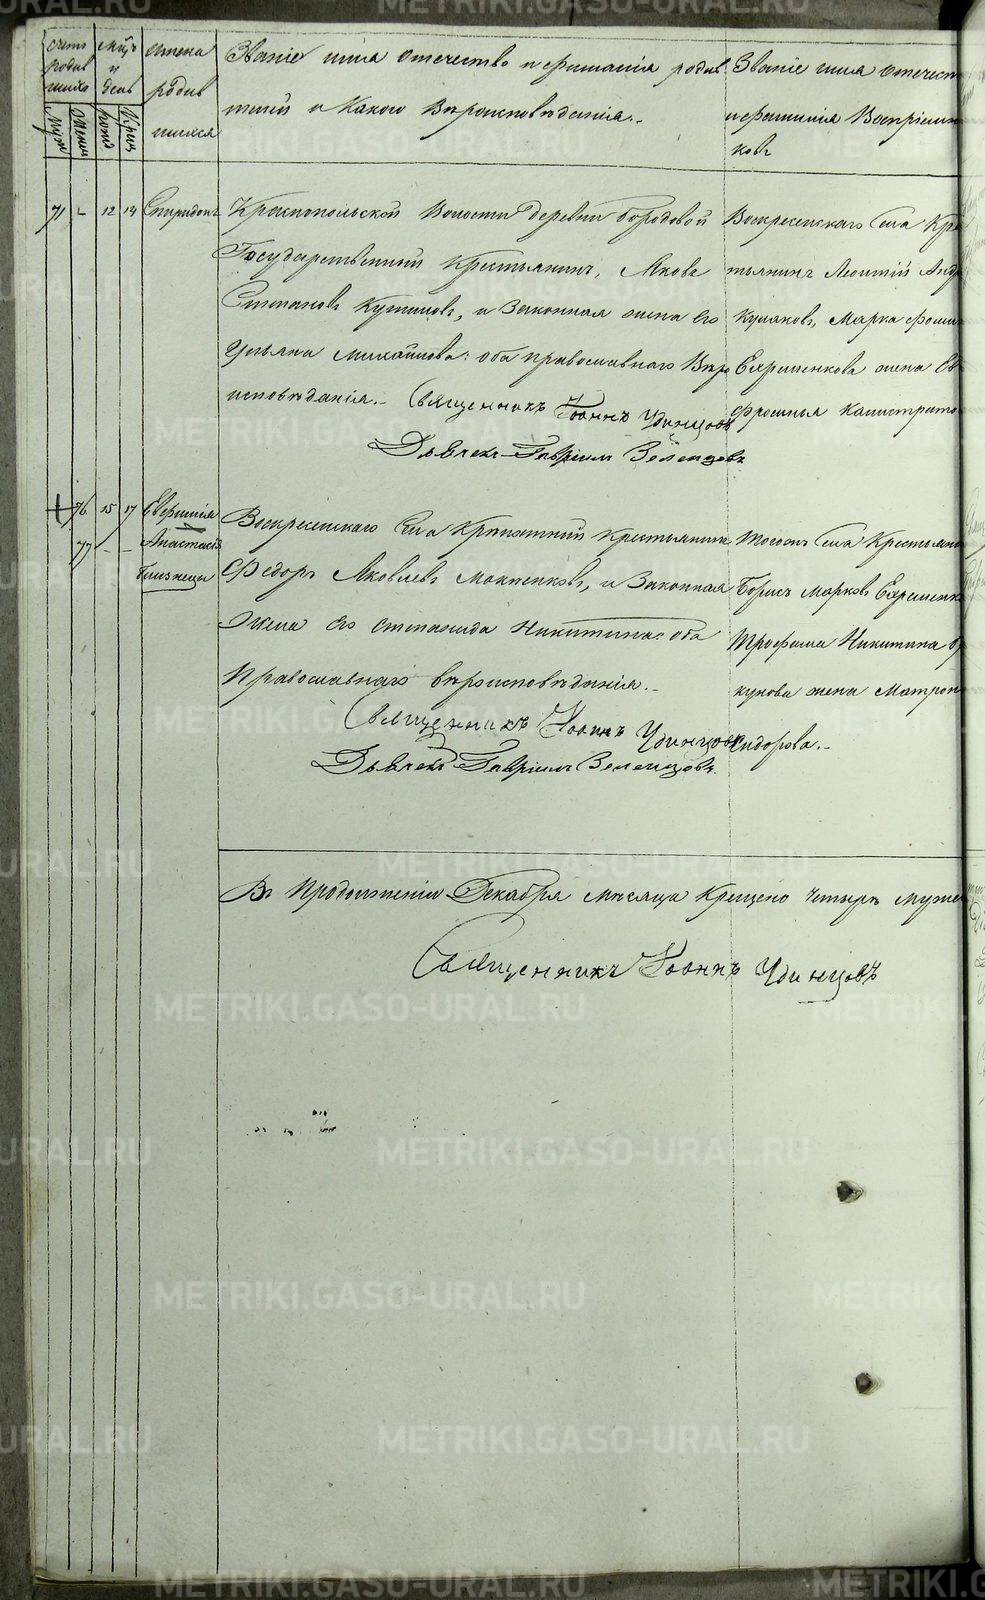 счетъ родившихся
Муж.
Женс.
мѣсяцъ и день
рожд
крещ
имена родившихся
Званіе имя отечество и фамилія родив
телей и какого вѣроисповѣданія.
Званіе имя отечест
и фамилія воспріемн
ковъ
71 – 12 14 Спиридонъ
Краснопольской волости деревни Бородовой
Государственный крестьянинъ, Яковъ
Степановъ, и законная жена его
Ульяна Михайлова: оба православнаго вѣро
исповѣданія.
Священникъ Іоаннъ Удинцовъ
Дьячекъ Гавріилъ Зеленцовъ
Воскресенскаго села Кре
стьянинъ Леонтій Андр
Кулаковъ, Марка
жена Ев
фросинья Калистрато
76 15 17
77 – –
Анастасія
близнецы
Воскресенскаго села крестьянинъ
Федоръ Яковлевъ, и законная
жена его Степанида Никитина: оба
православнаго вѣроисповѣданія.
Священникъ Іоаннъ Удинцовъ
Дьячекъ Гавріилъ Зеленцовъ
тогожъ села крестьянин
Борисъ Марковъ
Трофима Никитина
жена Матрон
Сидорова.
Въ продолженіи Декабря мѣсяца крещено четыре муже
Священникъ Іоаннъ Удинцовъ
METRIKI.GASO-URAL.RU